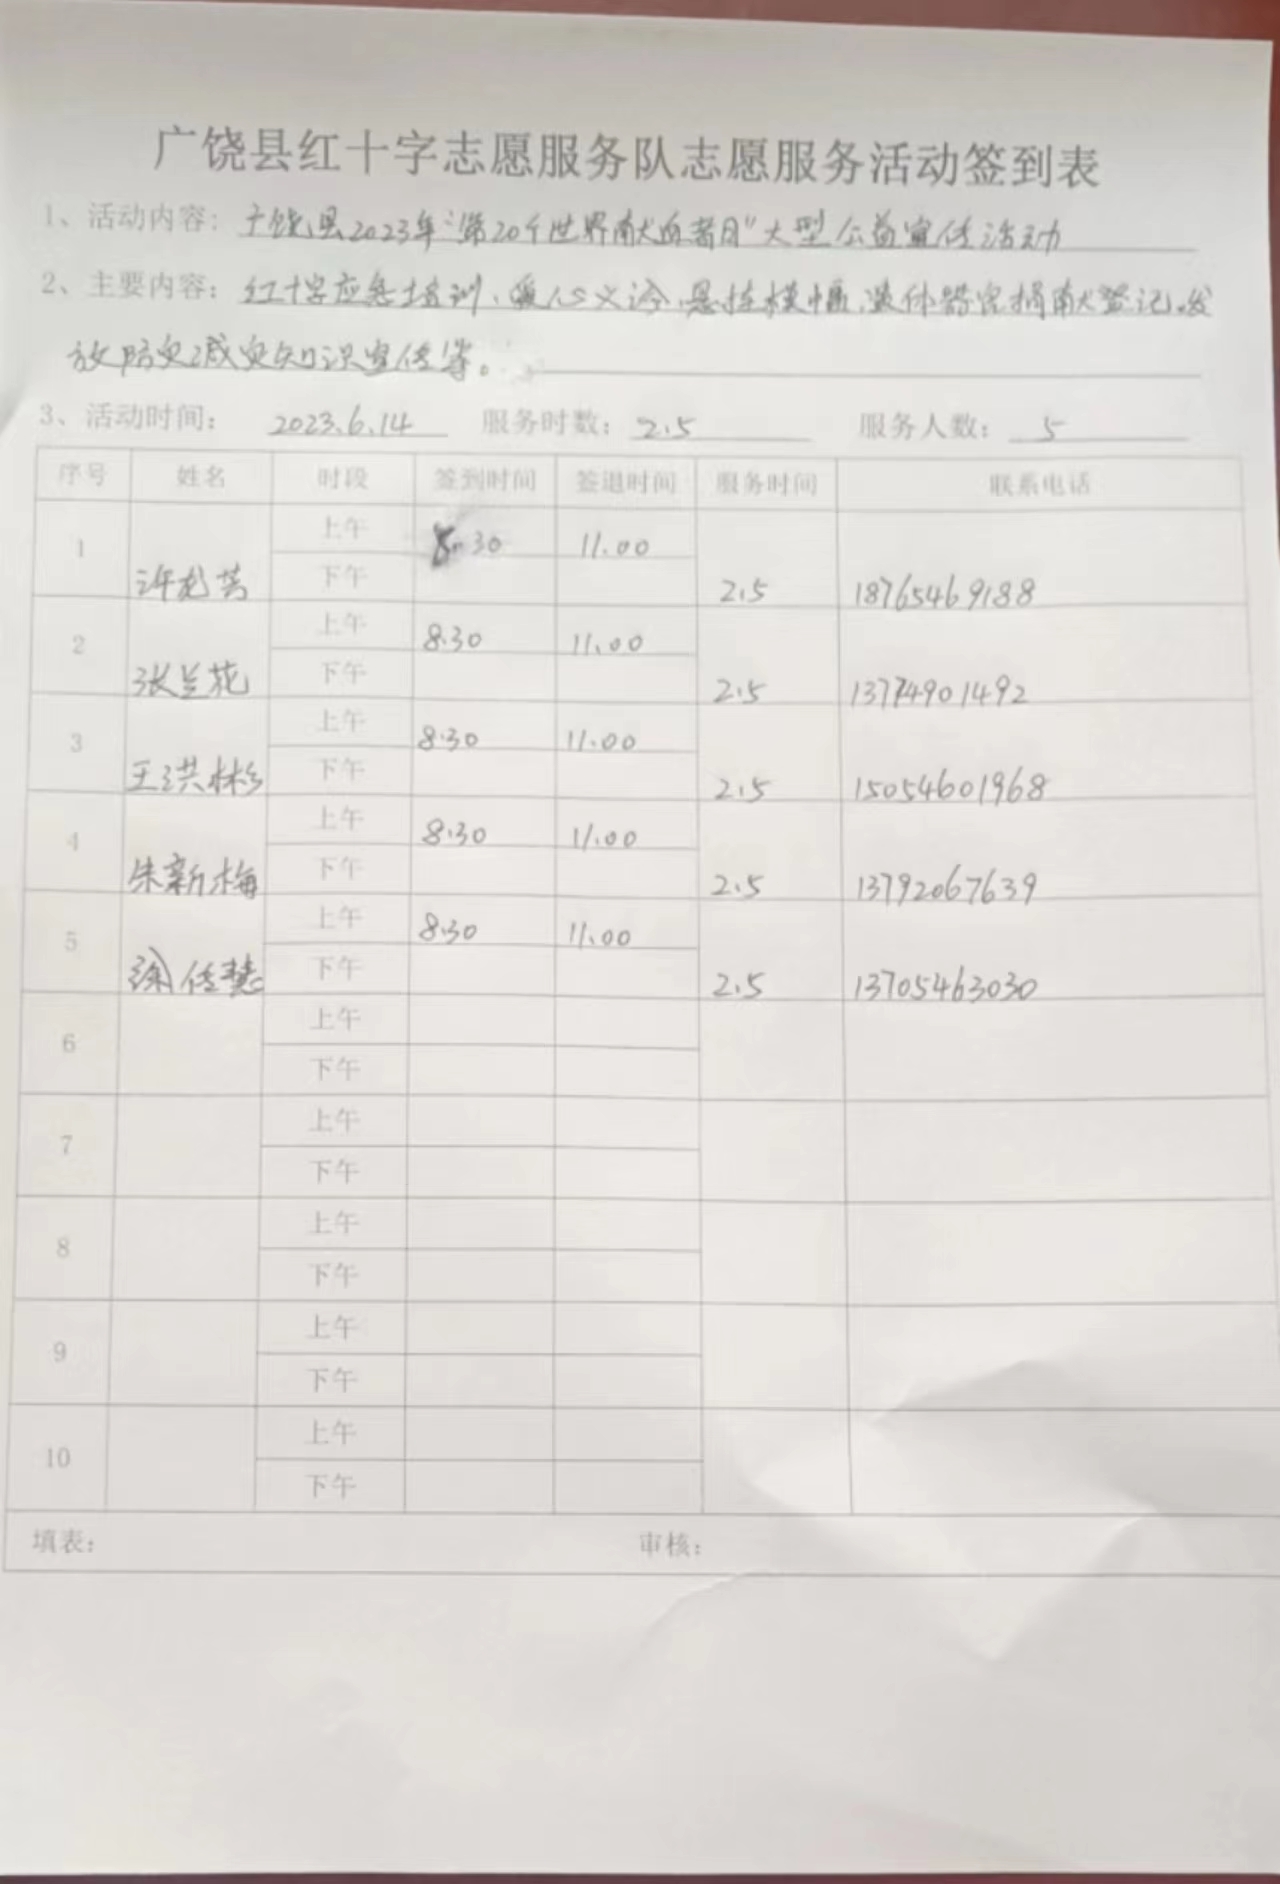 广饶县红十字志愿服务队志愿服务活动签到表
1、活动内容：广饶县2023年"第20个世界献血者日"大型公益宣传活动
2、主要内容：红十字应急培训、爱心义诊、悬挂横幅、遗体器官捐献登记、发
放防灾减灾知识宣传等。
3、活动时间：2023.6.14 服务时数：2.5 服务人数：5
序号 姓名 时段 签到时间 签退时间 服务时间 联系电话
1 上午 8.30 11.00
许 芸 下午 2.5 18765469188
2 上午 8.30 11.00
张兰花 下午 2.5 13774901492
3 上午 8.30 11.00
王洪彬 下午 2.5 15054601968
4 上午 8.30 11.00
朱新梅 下午 2.5 13792067639
5 上午 8.30 11.00
徐传慧 下午 2.5 13705463030
6 上午
下午
7 上午
下午
8 上午
下午
9 上午
下午
10 上午
下午
填表： 审核：